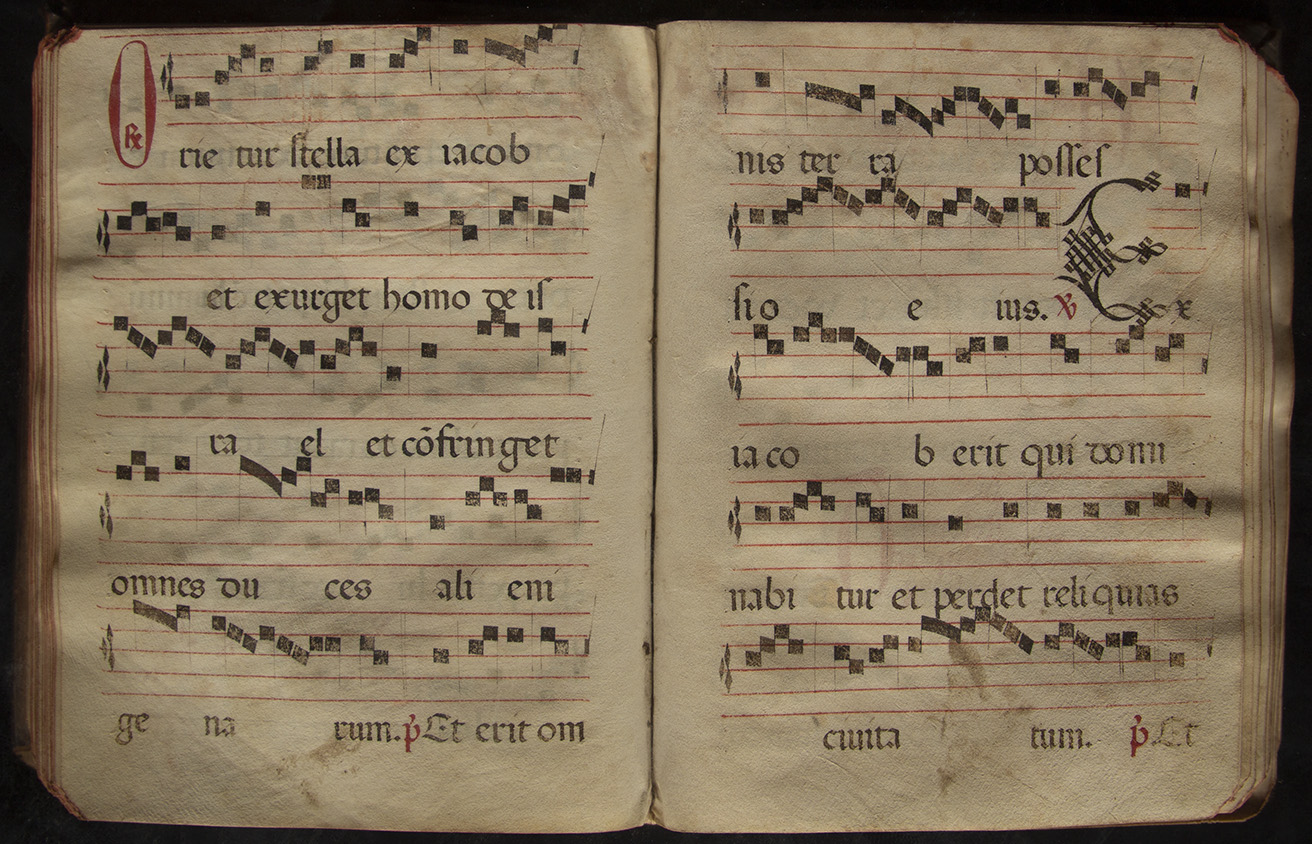 O ℟ rie tur stella ex iacob
et exurget homo de is
ra el et cõfringet
omnes du ces ali eni
ge na rum. p̃ Et erit om
nis ter ra posses
sio e ius. ℣ E x
iaco b erit qui domi
nabi tur et perdet reliquias
ciuita tum. p̃ Et